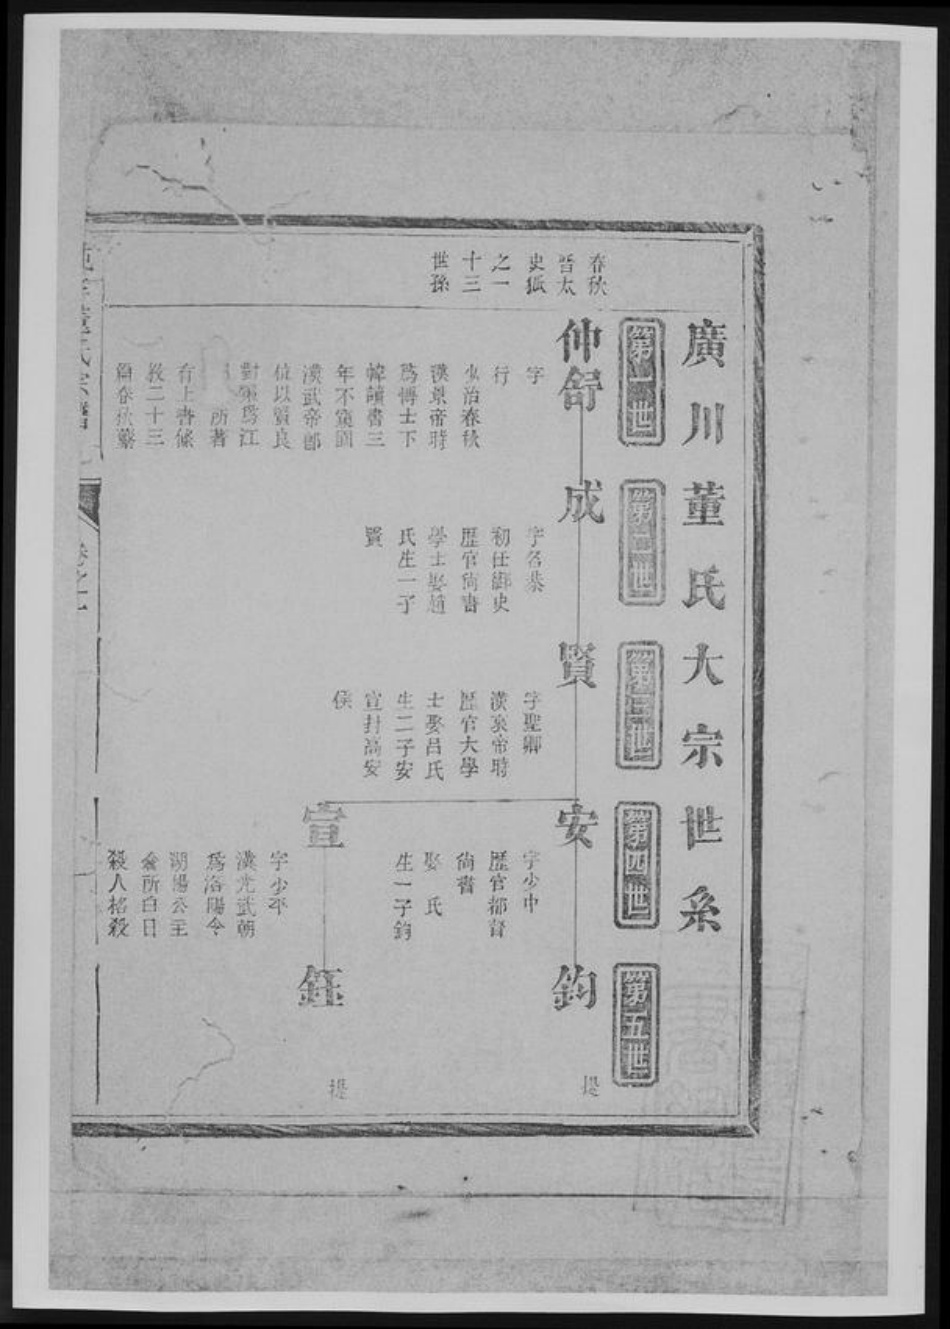 廣川董氏大宗世系
第一世
第二世
第三世
第四世
第五世
春秋
晉太
史狐
之一
十三
世孫
仲舒
字
行
少治春秋
漢景帝時
爲博士下
韓讀書三
年不窺園
漢武帝郎
位以賢良
對策爲江
所著
有上書條
教二十三
篇春秋蘩
成
字名恭
初仕御史
歷官尚書
學士娶趙
氏生一子
賢
賢
字聖卿
漢哀帝時
歷官大學
士娶呂氏
生二子安
宣封高安
侯
安
字少中
歷官都督
尚書
娶 氏
生一子鈞
宣
字少平
漢光武朝
爲洛陽令
湖陽公主
倉所白日
殺人格殺
鈞
提
鈺
提
董氏宗譜
卷之一